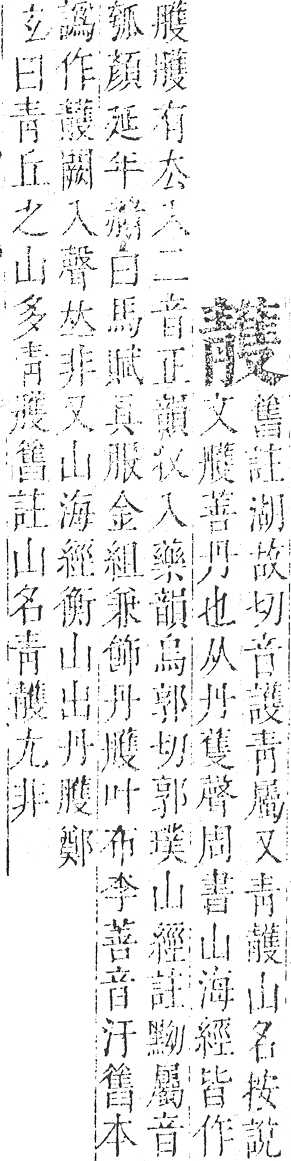 䨼
舊註湖故切音護青屬又青䨼山名按說
文雘善丹也从丹隻聲周書山海經皆作
雘雘有去入二音正韻收入藥韻烏郭切郭璞山經註黝屬音
瓠顏延年赭白馬賦具服金組兼飾丹雘叶布李善音汙舊本
譌作䨼闕入聲𠀤非又山海經衡山出丹雘鄭
玄曰青丘之山多青雘舊註山名青䨼尤非